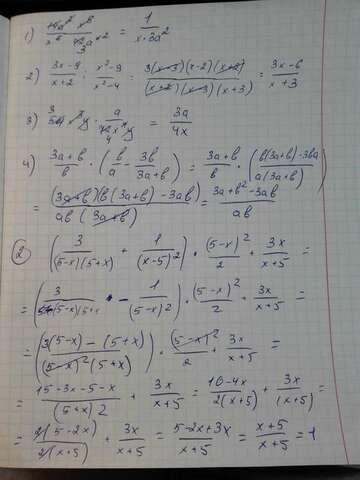 1) 14a² x⁸ / x⁶ 42a x² = 1 / x·3a²
2) 3x-9 / x+2 : x²-9 / x²-4 = 3(x-3)(x-2)(x+2) / (x+2)(x-3)(x+3) = 3x-6 / x+3
3) · a / = 3a / 4x
4) 3a+b / b · (b/a - 3b / 3a+b) = 3a+b / b · (b(3a+b)-3ba / a(3a+b))
= (3a+b)(b(3a+b)-3ab) / ab(3a+b) = 3a+b²-3ab / ab
2 (3 / (5-x)(5+x) + 1 / (x-5)²) · (5-x)² / 2 + 3x / x+5 =
= (3 / (5-x)(5+x - 1 / (5-x)²) · (5-x)² / 2 + 3x / x+5 =
= (3(5-x)-(5+x) / (5-x)²(5+x)) · (5-x)² / 2 + 3x / x+5 =
= 15-3x-5-x / (5+x)2 + 3x / x+5 = 10-4x / 2(x+5) + 3x / (x+5) =
= 2(5-2x) / 2(x+5) + 3x / x+5 = 5-2x+3x / x+5 = x+5 / x+5 = 1